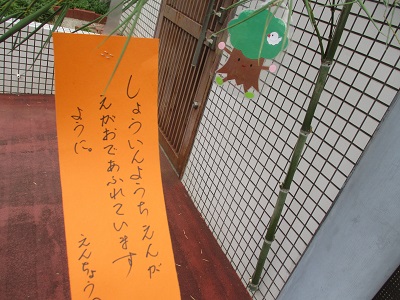 しょういんようちえんが
えがおであふれています
ように。
えんちょう